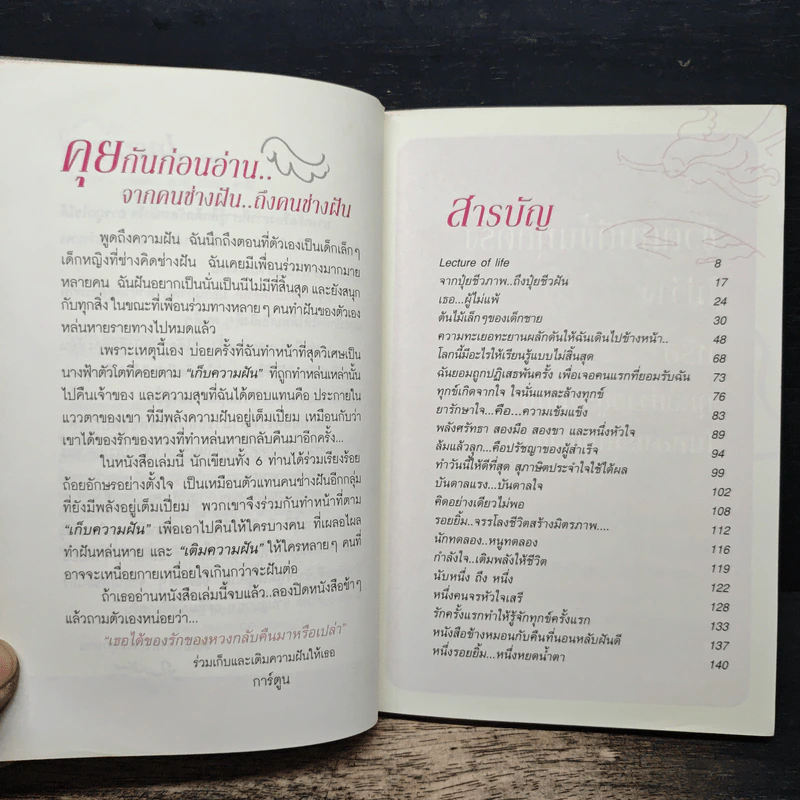 คุยกันก่อนอ่าน..
จากคนช่างฝัน..ถึงคนช่างฝัน
พูดถึงความฝัน ฉันนึกถึงตอนที่ตัวเองเป็นเด็กเล็กๆ
เด็กหญิงที่ช่างคิดช่างฝัน ฉันเคยมีเพื่อนร่วมทางมากมาย
หลายคน ฉันฝันอยากเป็นนั่นเป็นนี่ไม่มีที่สิ้นสุด และยังสนุก
กับทุกสิ่ง ในขณะที่เพื่อนร่วมทางหลายๆ คนทำฝันของตัวเอง
หล่นหายรายทางไปหมดแล้ว
เพราะเหตุนี้เอง บ่อยครั้งที่ฉันทำหน้าที่สุดวิเศษเป็น
นางฟ้าตัวโตที่คอยตาม "เก็บความฝัน" ที่ถูกทำหล่นเหล่านั้น
ไปคืนเจ้าของ และความสุขที่ฉันได้ตอบแทนคือ ประกายใน
แววตาของเขา ที่มีพลังความฝันอยู่เต็มเปี่ยม เหมือนกับว่า
เขาได้ของรักของหวงที่ทำหล่นหายกลับคืนมาอีกครั้ง...
ในหนังสือเล่มนี้ นักเขียนทั้ง 6 ท่านได้ร่วมเรียงร้อย
ถ้อยอักษรอย่างตั้งใจ เป็นเหมือนตัวแทนคนช่างฝันอีกกลุ่ม
ที่ยังมีพลังอยู่เต็มเปี่ยม พวกเขาจึงร่วมกันทำหน้าที่ตาม
"เก็บความฝัน" เพื่อเอาไปคืนให้ใครบางคน ที่เผลอไผล
ทำฝันหล่นหาย และ "เติมความฝัน" ให้ใครหลายๆ คนที่
อาจจะเหนื่อยกายเหนื่อยใจเกินกว่าจะฝันต่อ
ถ้าเธออ่านหนังสือเล่มนี้จบแล้ว..ลองปิดหนังสือช้าๆ
แล้วถามตัวเองหน่อยว่า...
"เธอได้ของรักของหวงกลับคืนมาหรือเปล่า"
ร่วมเก็บและเติมความฝันให้เธอ
การ์ตูน
สารบัญ
Lecture of life 8
จากปุ๋ยชีวภาพ..ถึงปุ๋ยชีวฝัน 17
เธอ...ผู้ไม่แพ้ 24
ต้นไม้เล็กๆของเด็กชาย 30
ความทะเยอทะยานผลักดันให้ฉันเดินไปข้างหน้า.. 48
โลกนี้มีอะไรให้เรียนรู้แบบไม่สิ้นสุด 68
ฉันยอมถูกปฏิเสธพันครั้ง เพื่อเจอคนแรกที่ยอมรับฉัน 73
ทุกข์เกิดจากใจ ใจนั่นแหละล้างทุกข์ 76
ยารักษาใจ...คือ...ความเข้มแข็ง 83
พลังศรัทธา สองมือ สองขา และหนึ่งหัวใจ 89
ล้มแล้วลุก...คือปรัชญาของผู้สำเร็จ 94
ทำวันนี้ให้ดีที่สุด สุภาษิตประจำใจใช้ได้ผล 99
บันดาลแรง...บันดาลใจ 102
คิดอย่างเดียวไม่พอ 108
รอยยิ้ม..จรรโลงชีวิตสร้างมิตรภาพ.... 112
นักทดลอง..หนูทดลอง 116
กำลังใจ..เติมพลังให้ชีวิต 119
นับหนึ่ง ถึง หนึ่ง 122
หนึ่งคนจรหัวใจเสรี 128
รักครั้งแรกทำให้รู้จักทุกข์ครั้งแรก 133
หนังสือข้างหมอนกับคืนที่นอนหลับฝันดี 137
หนึ่งรอยยิ้ม...หนึ่งหยดน้ำตา 140